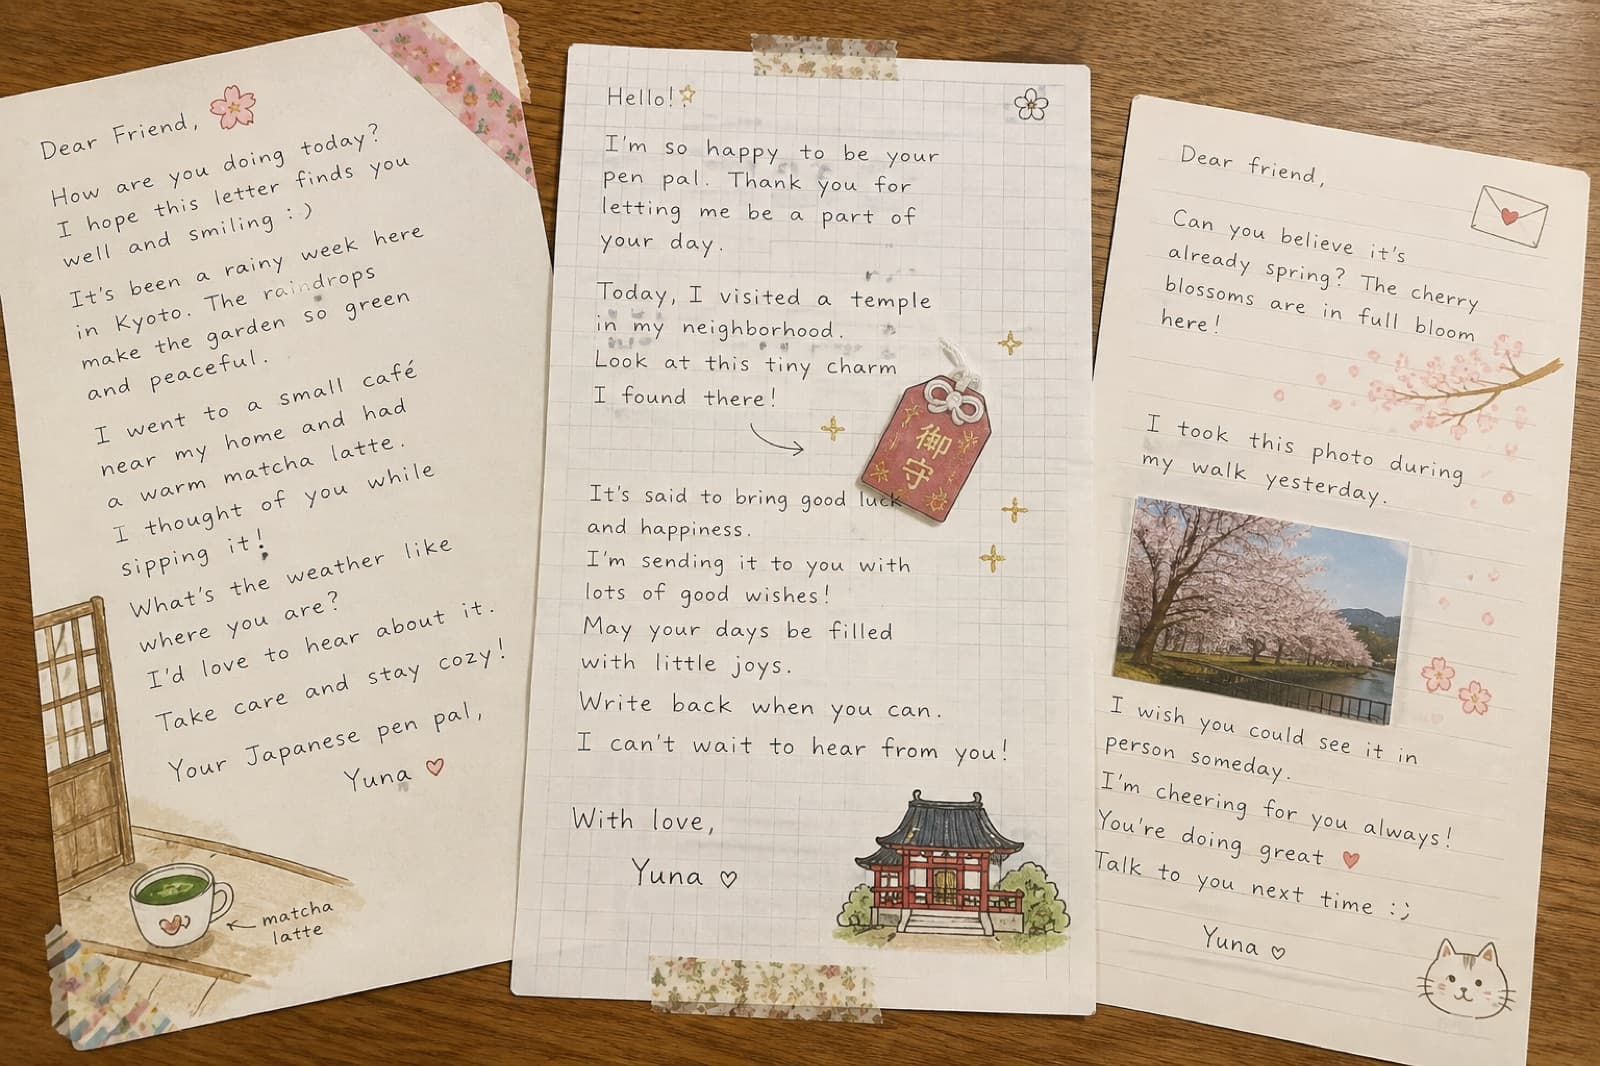 Dear Friend,
How are you doing today?
I hope this letter finds you
well and smiling :)
It's been a rainy week here
in Kyoto. The raindrops
make the garden so green
and peaceful.
I went to a small café
near my home and had
a warm matcha latte.
I thought of you while
sipping it!
What's the weather like
where you are?
I'd love to hear about it.
Take care and stay cozy!
Your Japanese pen pal,
Yuna ♡
matcha
latte
Hello!
I'm so happy to be your
pen pal. Thank you for
letting me be a part of
your day.
Today, I visited a temple
in my neighborhood.
Look at this tiny charm
I found there!
御守
It's said to bring good luck
and happiness.
I'm sending it to you with
lots of good wishes!
May your days be filled
with little joys.
Write back when you can.
I can't wait to hear from you!
With love,
Yuna ♡
Dear friend,
Can you believe it's
already spring? The cherry
blossoms are in full bloom
here!
I took this photo during
my walk yesterday.
I wish you could see it in
person someday.
I'm cheering for you always!
You're doing great ♥
Talk to you next time :;
Yuna ♡